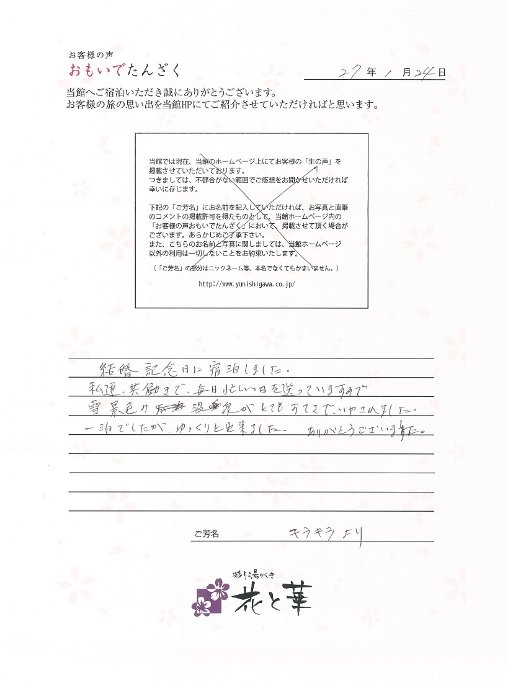 お客様の声
おもいでたんざく
27年 1月 24日
当館へご宿泊いただき誠にありがとうございます。
お客様の旅の思い出を当館HPにてご紹介させていただければと思います。
当館では現在、当館のホームページ上にてお客様の「生の声」を
掲載させていただいております。
つきましては、不都合がない範囲でご感想をお聞かせいただければ
幸いに存じます。
下記の「ご芳名」にお名前を記入していただければ、お写真と直筆
のコメントの掲載許可を得たものとして、当館ホームページ内の
「お客様の声おもいでたんざく」において、掲載させて頂く場合が
ございます。あらかじめご了承下さい。
また、こちらのお名前と写真に関しましては、当館ホームページ
以外の利用は一切しないことをお約束いたします。
(「ご芳名」の部分はニックネーム等、本名でなくてもかまいません。)
http://www.yunishigawa.co.jp/
結婚記念日に宿泊しました。
私達、共働きで、毎日忙しい日を送っていますので
雪景色の 温泉がとても すてきで、いやされました。
一泊でしたが、ゆっくりと出来ました。 ありがとうございました。
ご芳名 キラキラ より
彩り湯かしき
花と華